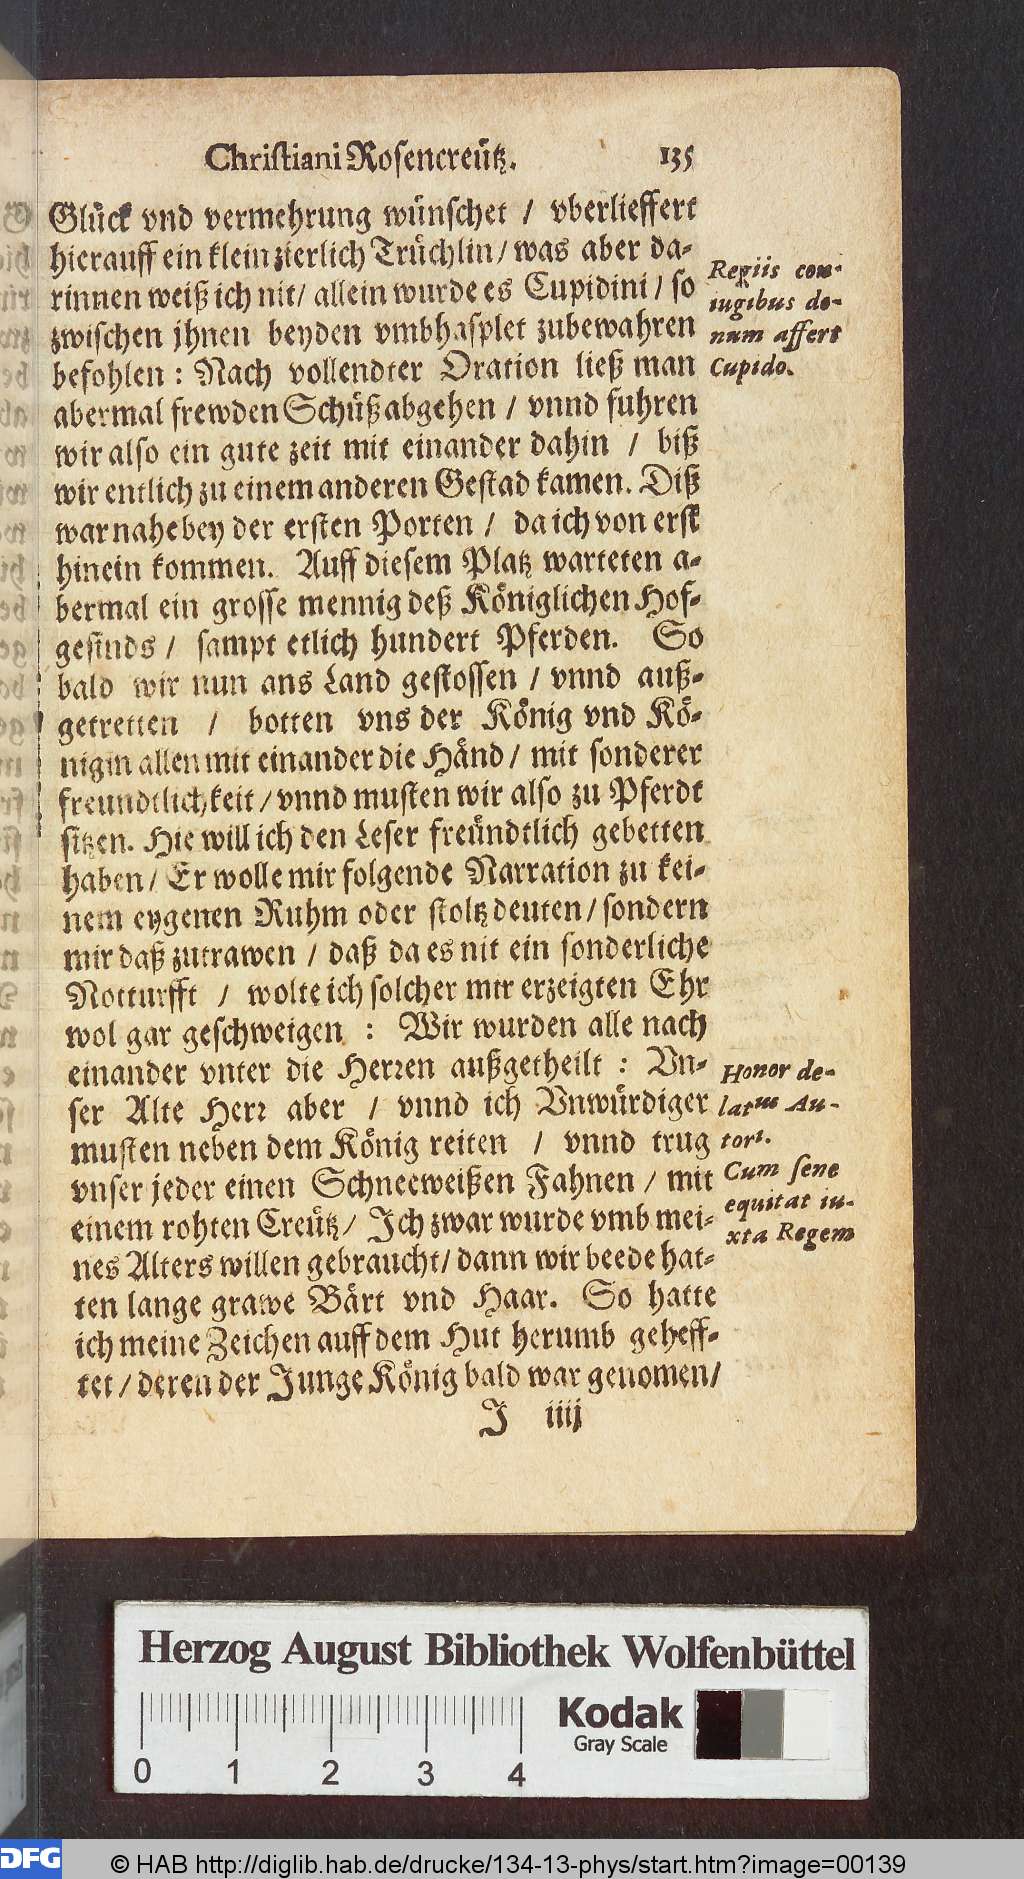 Christiani Rosencreütz. 135
Glück vnd vermehrung wünschet / vberlieffert
hierauff ein klein zierlich Trüchlin / was aber da-
rinnen weiß ich nit / allein wurde es Cupidini / so
zwischen jhnen beyden vmbhasplet zubewahren
befohlen : Nach vollendter Oration ließ man
abermal frewden Schüß abgehen / vnnd fuhren
wir also ein gute zeit mit einander dahin / biß
wir entlich zu einem anderen Gestad kamen. Diß
war nahe bey der ersten Porten / da ich von erst
hinein kommen. Auff diesem Platz warteten a-
bermal ein grosse mennig deß Königlichen Hof-
gesinds / sampt etlich hundert Pferden. So
bald wir nun ans Land gestossen / vnnd auß-
getretten / botten vns der König vnd Kö-
nigin allen mit einander die Händ / mit sonderer
freundtlichkeit / vnnd musten wir also zu Pferdt
sitzen. Hie will ich den Leser freündtlich gebetten
haben / Er wolle mir folgende Narration zu kei-
nem eygenen Ruhm oder stoltz deuten / sondern
mir daß zutrawen / daß da es nit ein sonderliche
Notturfft / wolte ich solcher mir erzeigten Ehr
wol gar geschweigen : Wir wurden alle nach
einander vnter die Herren außgetheilt : Vn-
ser Alte Herr aber / vnnd ich Vnwürdiger
musten neben dem König reiten / vnnd trug
vnser jeder einen Schneeweißen Fahnen / mit
einem rohten Creütz / Ich zwar wurde vmb mei-
nes Alters willen gebraucht / dann wir beede hat-
ten lange grawe Bärt vnd Haar. So hatte
ich meine Zeichen auff dem Hut herumb geheff-
tet / deren der Junge König bald war genomen /
J iiij
Regiis con-
iugibus do-
num affert
Cupido.
Honor de-
latus Au-
tori.
Cum sene
equitat iu-
xta Regem
Herzog August Bibliothek Wolfenbüttel
Kodak
Gray Scale
0 1 2 3 4
DFG
© HAB http://diglib.hab.de/drucke/134-13-phys/start.htm?image=00139